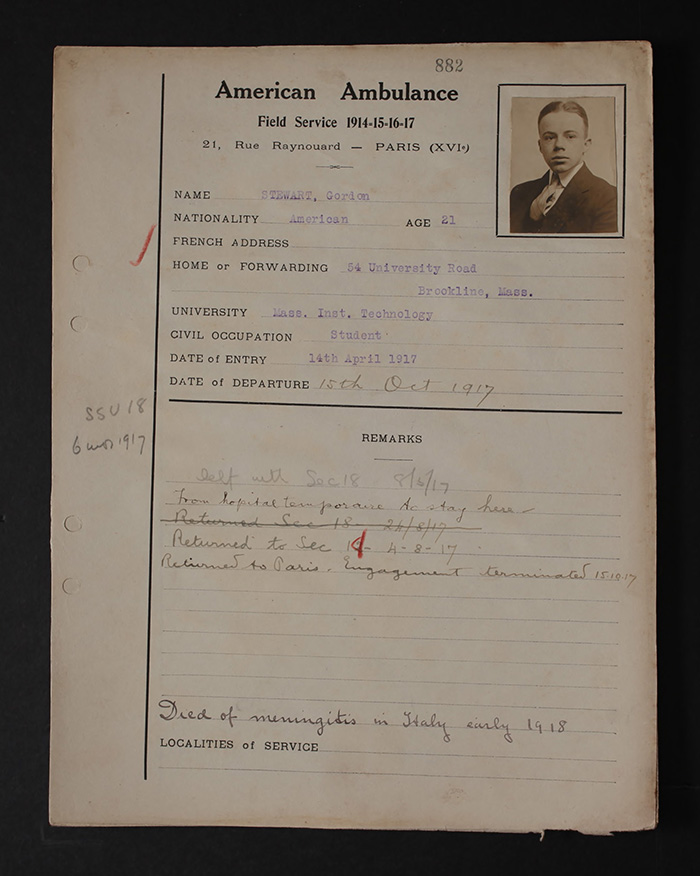 882
American Ambulance
Field Service 1914-15-16-17
21, Rue Raynouard — PARIS (XVIe)
NAME STEWART, Gordon
NATIONALITY American AGE 21
FRENCH ADDRESS
HOME or FORWARDING 54 University Road
Brookline, Mass.
UNIVERSITY Mass. Inst. Technology
CIVIL OCCUPATION Student
DATE of ENTRY 14th April 1917
DATE of DEPARTURE 15th Oct 1917
SSU 18
6 mos 1917
REMARKS
Left with Sec 18 8/5/17
From hopital temporaire to stay here
Returned Sec 18 24/5/17
Returned to Sec 4-8-17
Returned to Paris. Engagement terminated 15.10.17
Died of meningitis in Italy early 1918
LOCALITIES of SERVICE